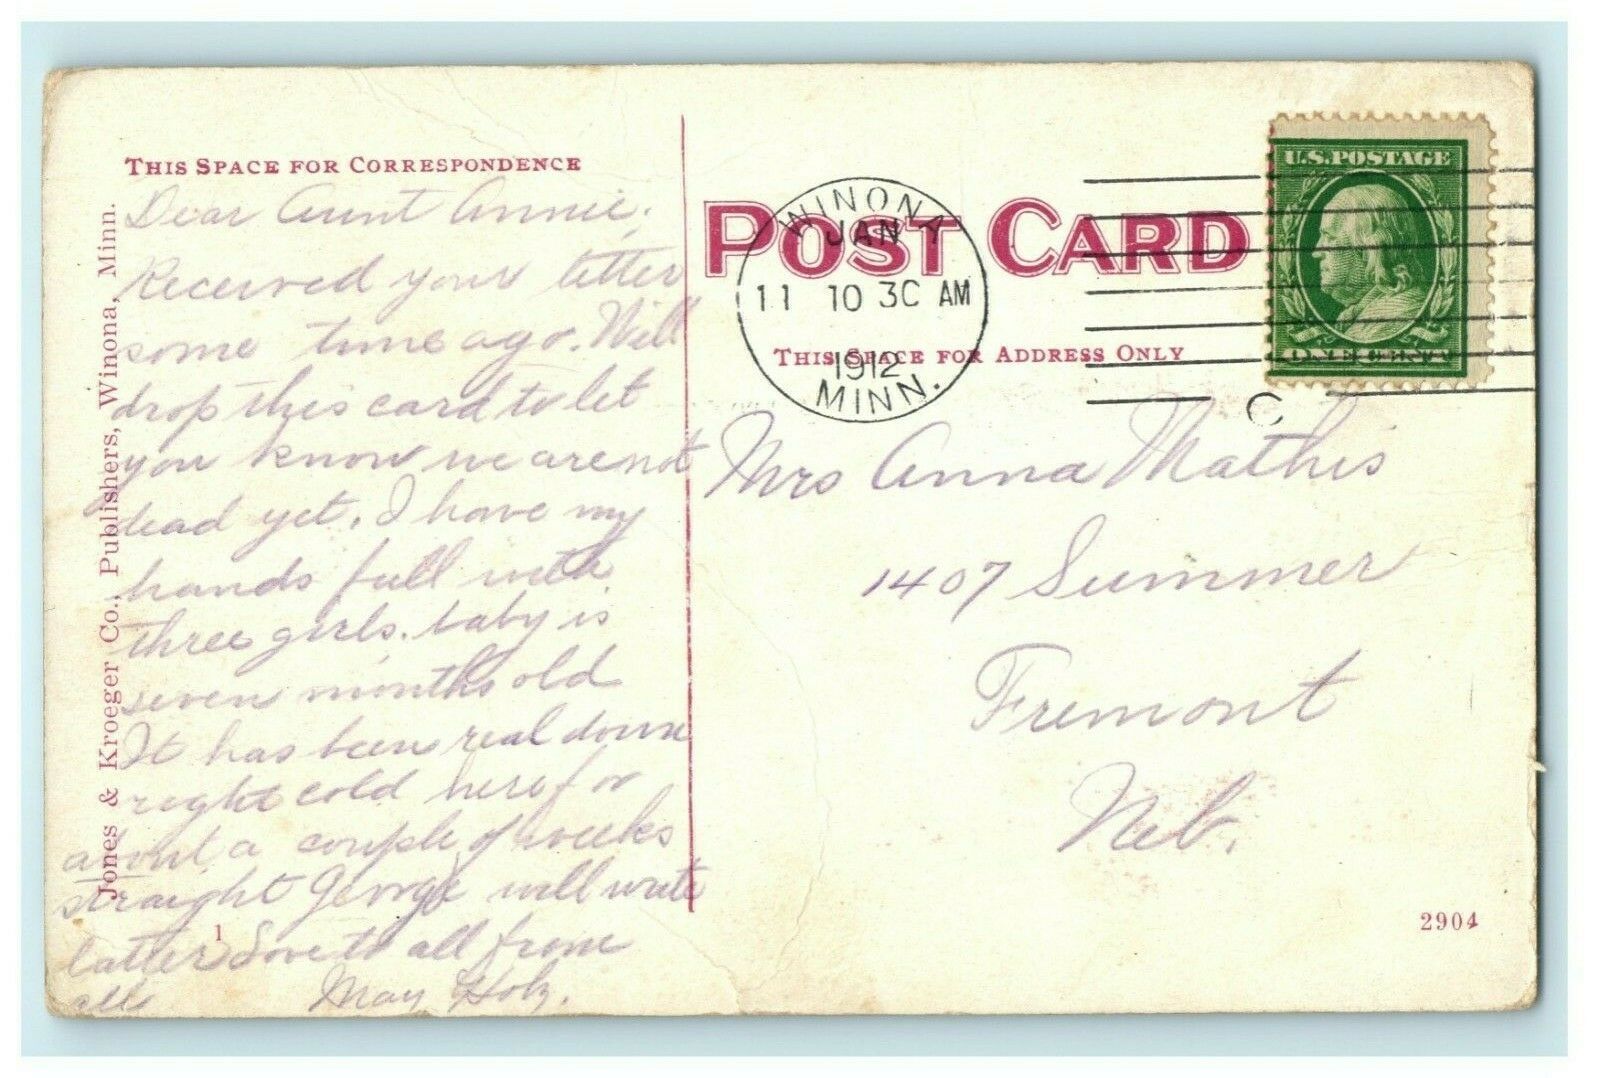 THIS SPACE FOR CORRESPONDENCE
Dear Aunt Annie;
Received your letter
some time ago. Will
drop this card to let
you know we are not
dead yet. I have my
hands full with
three girls. baby is
seven months old
It has been real down
right cold here for
about a couple of weeks
straight George will write
latter Love to all from
all
May Holz.
Jones & Kroeger Co., Publishers, Winona, Minn.
1
POST CARD
WINONA
JAN
11 10 30 AM
1912
MINN.
THIS SPACE FOR ADDRESS ONLY
C
U.S. POSTAGE
Mrs Anna Mathis
1407 Summer
Fremont
Neb.
2904